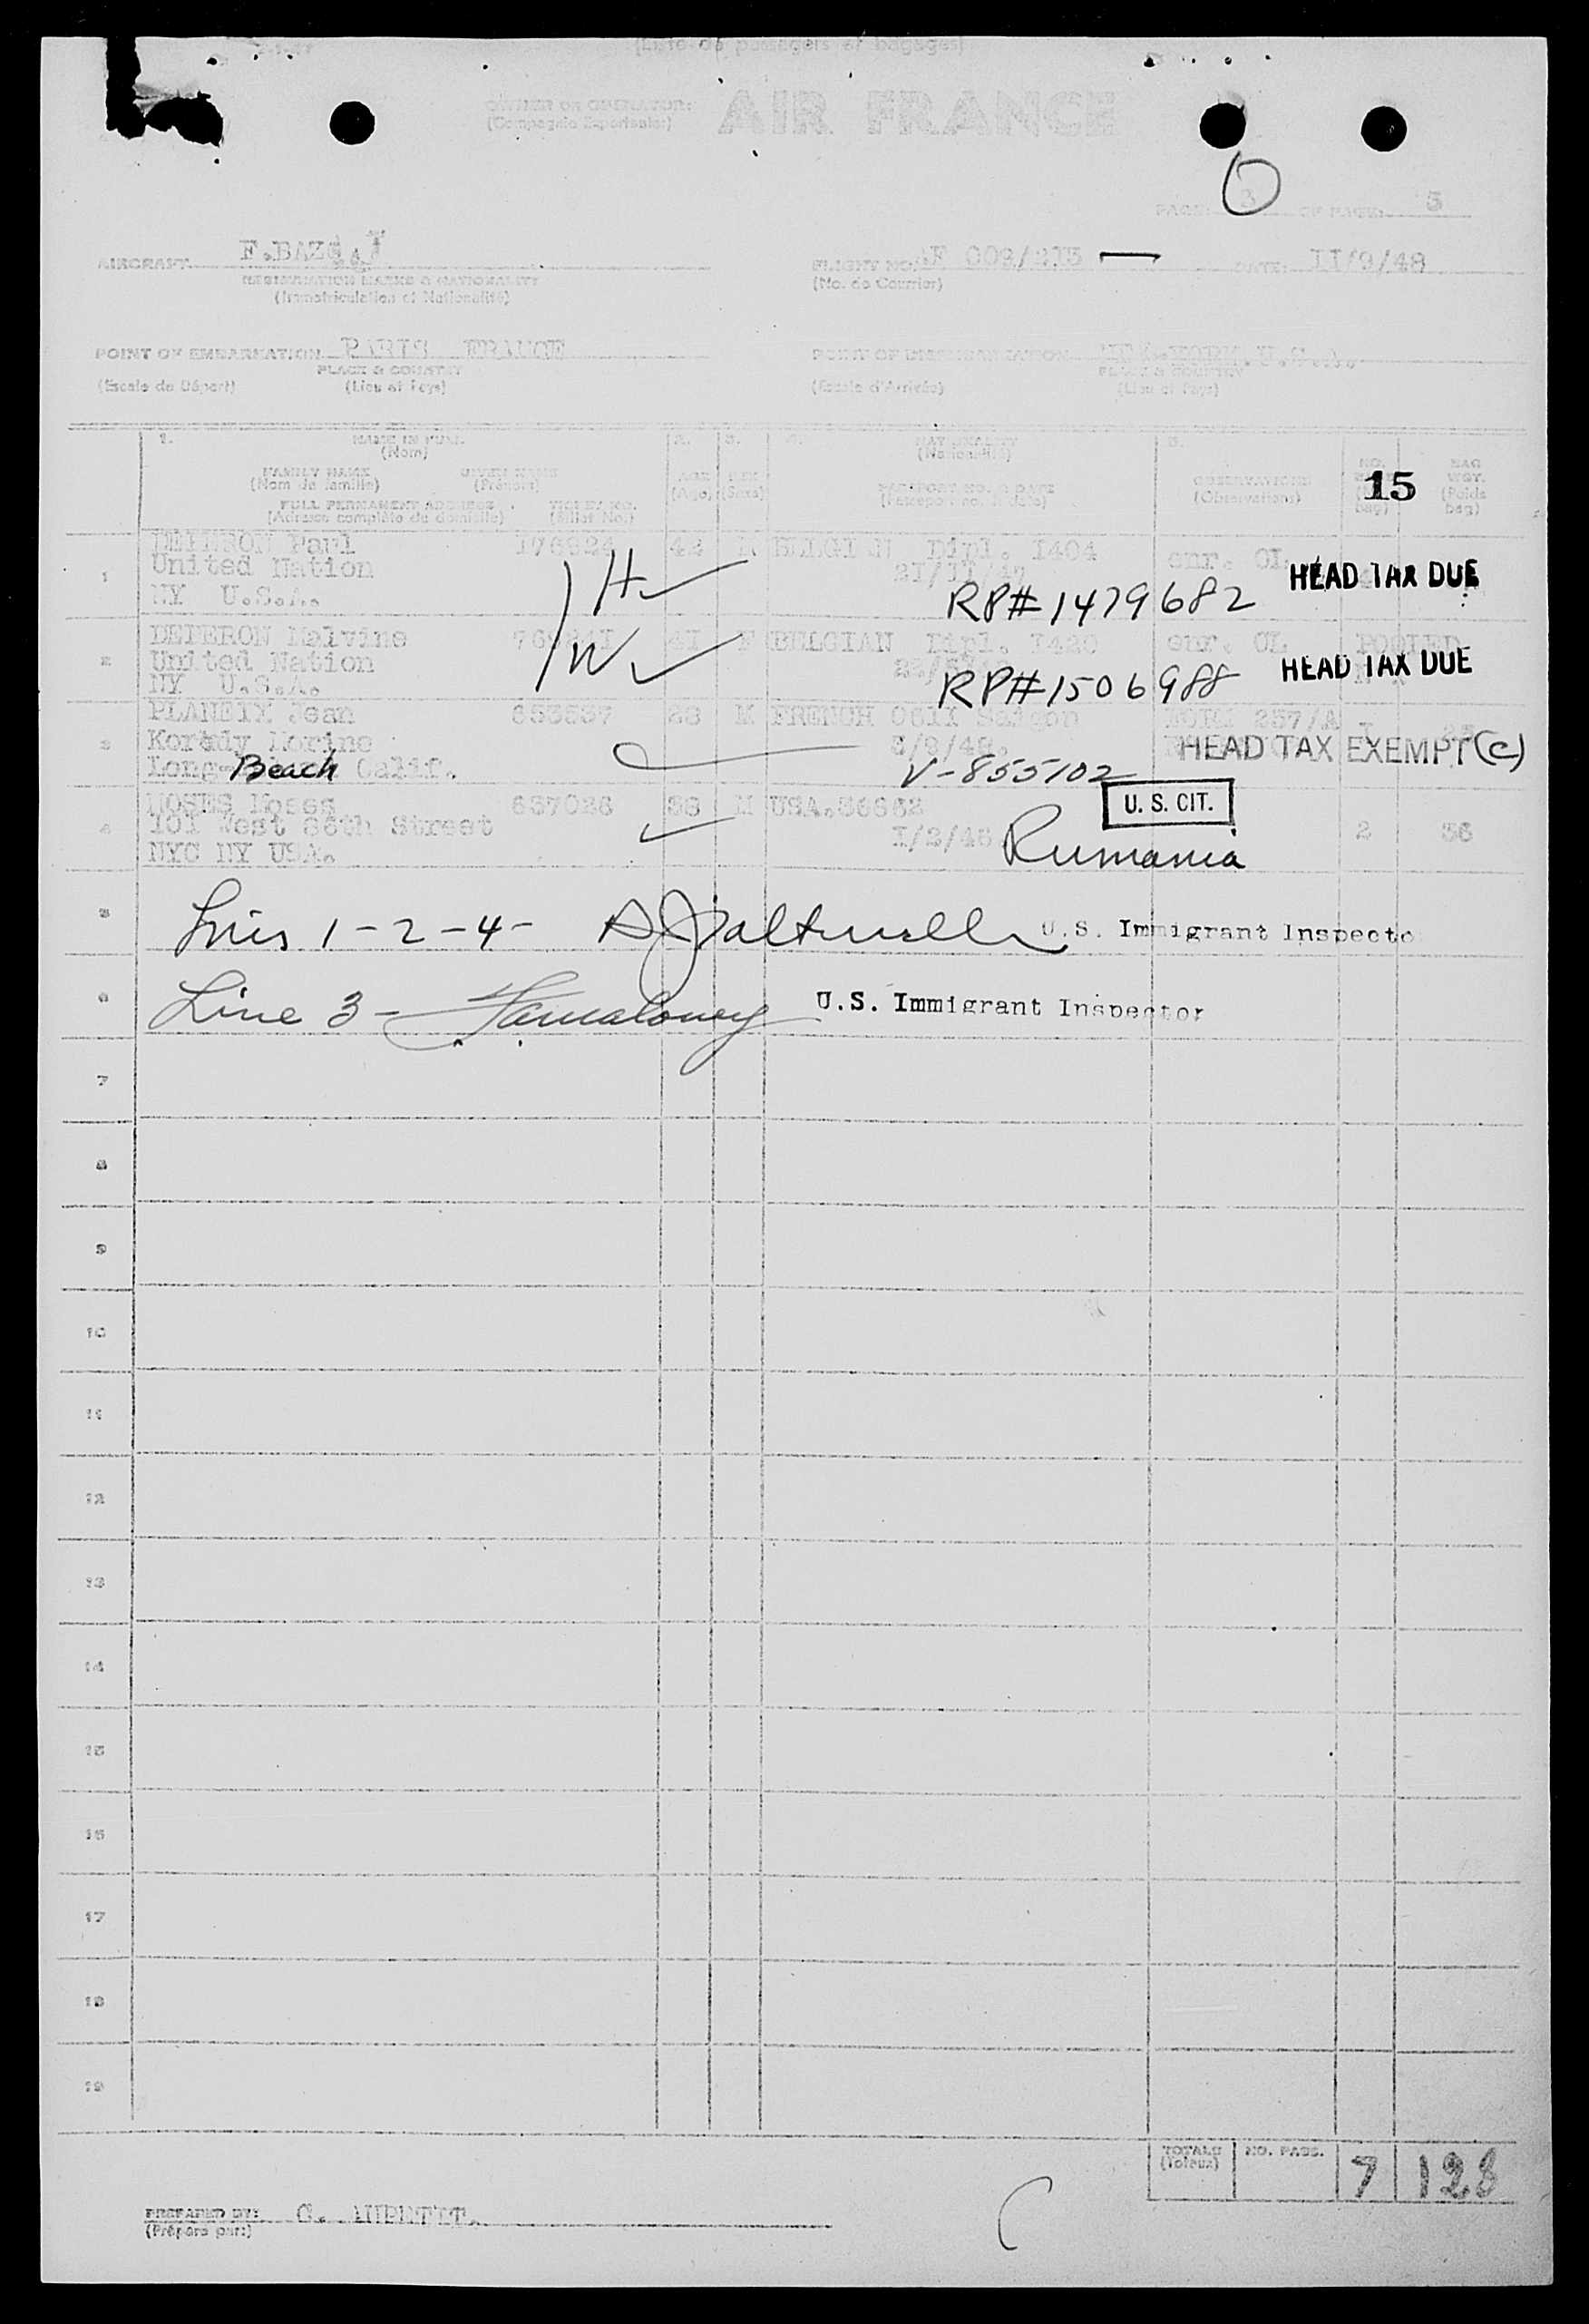 (Liste de passagers et bagages)
OWNER OR OPERATOR:
(Compagnie Exportosie:)
AIR FRANCE
PAGE: 3 OF PAGE: 5
AIRCRAFT F.BAZ
REGISTRATION MARKS & NATIONALITY
(Immatriculation et Nationalité)
FLIGHT NO. AF 009/213 — DATE: II/9/48
(No. de Courrier)
POINT OF EMBARKATION PARIS FRANCE
PLACE & COUNTRY
(Escale de Départ) (Lieu et Pays)
POINT OF DISEMBARKATION NEW.YORK.U.S.A.
PLACE & COUNTRY
(Escale d'Arrivée) (Lieu et Pays)
1. NAME IN FULL
(Nom)
FAMILY NAME GIVEN NAME
(Nom de famille) (Prénom)
FULL PERMANENT ADDRESS TICKET NO.
(Adresse complète de domicile) (Billet No.)
2. AGE
(Age)
3. SEX
(Sexe)
4. NATIONALITY
(Nationalité)
PASSPORT NO. & DATE
(Passeport no. & date)
5. OBSERVATIONS
(Observations)
NO.
15
bag)
BAG
WGT.
(Poids
bag)
1 DEPERON Paul 176824 42 M BELGIAN Dipl. I404 enr. OL
United Nation 2I/II/47 HEAD TAX DUE
NY U.S.A. H RP# 1479682
2 DEPERON Melvine 4I F BELGIAN Dipl. I420 enr. OL POOLED
United Nation W HEAD TAX DUE
NY U.S.A. RP# 1506988
3 PLANEIX Jean 653537 28 M FRENCH 06II Saigon FORM 257/A I
Korady Lorine 3/9/48. HEAD TAX EXEMPT (c)
Long Beach Calif. V-855102
4 MOSES Moses 657026 38 M USA.36662 U. S. CIT.
101 West 86th Street I/2/48 2 36
NYC NY USA. Rumania
5 Lines 1-2-4- U.S. Immigrant Inspecto
6 Line 3- U.S. Immigrant Inspector
7
8
9
10
11
12
13
14
15
16
17
18
19
TOTALS NO. PASS. 7 128
(Totaux)
PREPARED BY: G.
(Prépare par:)